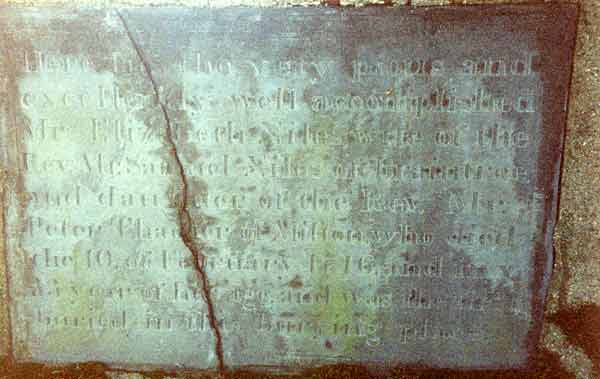 Here lies the very pious and
excellently well accomplished
Mrs. Elizabeth Niles wife of the
Rev. Mr. Samuel Niles of Braintree
and daughter of the Rev. Mr.
Peter Thacher of Milton who died
the 10, of February 1716, and in ye
year of her age and was the
buried in this burying place